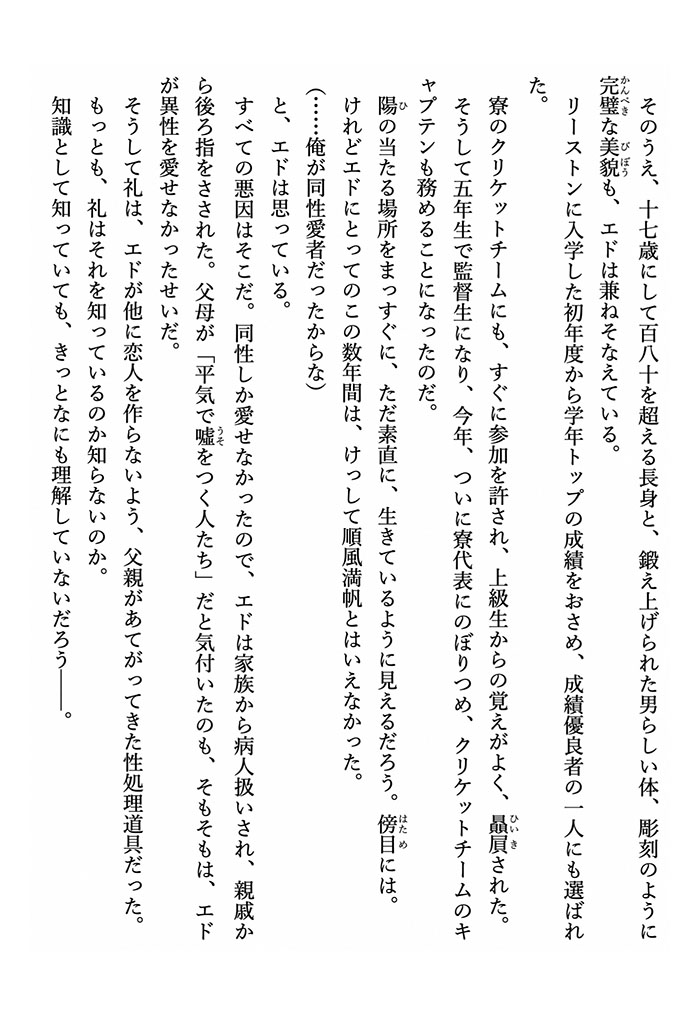 そのうえ、十七歳にして百八十を超える長身と、鍛え上げられた男らしい体、彫刻のように
完璧な美貌も、エドは兼ねそなえている。
リーストンに入学した初年度から学年トップの成績をおさめ、成績優良者の一人にも選ばれ
た。
寮のクリケットチームにも、すぐに参加を許され、上級生からの覚えがよく、贔屓された。
そうして五年生で監督生になり、今年、ついに寮代表にのぼりつめ、クリケットチームのキ
ャプテンも務めることになったのだ。
陽の当たる場所をまっすぐに、ただ素直に、生きているように見えるだろう。傍目には。
けれどエドにとってのこの数年間は、けっして順風満帆とはいえなかった。
(……俺が同性愛者だったからな)
と、エドは思っている。
すべての悪因はそこだ。同性しか愛せなかったので、エドは家族から病人扱いされ、親戚か
ら後ろ指をさされた。父母が「平気で嘘をつく人たち」だと気付いたのも、そもそもは、エド
が異性を愛せなかったせいだ。
そうして礼は、エドが他に恋人を作らないよう、父親があてがってきた性処理道具だった。
もっとも、礼はそれを知っているのか知らないのか。
知識として知っていても、きっとなにも理解していないだろう――。